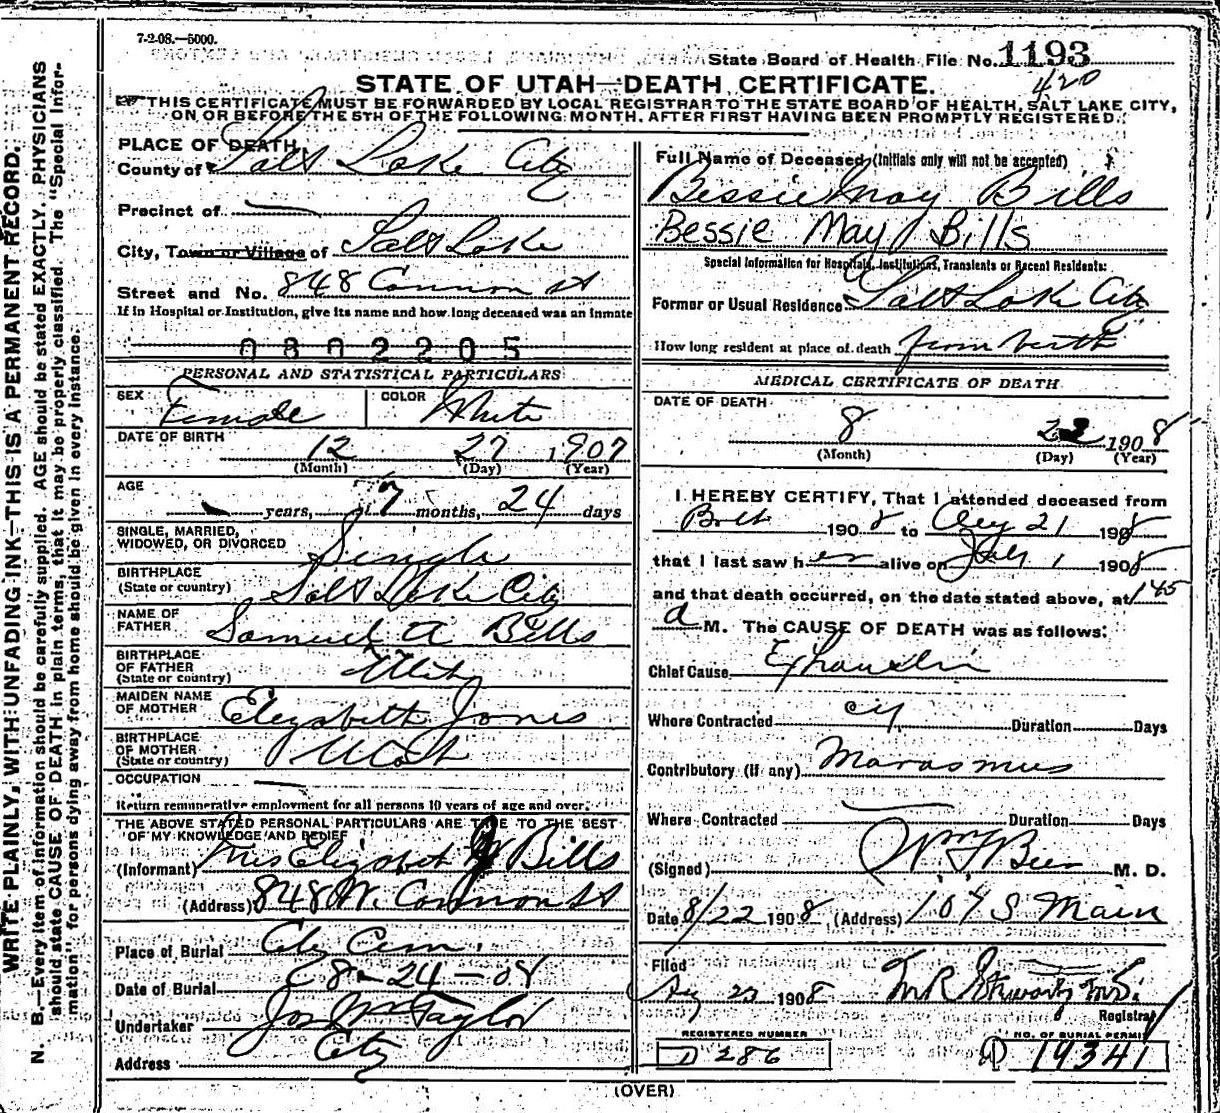 7-2-08.—5000.
State Board of Health File No. 1193
420
STATE OF UTAH—DEATH CERTIFICATE.
THIS CERTIFICATE MUST BE FORWARDED BY LOCAL REGISTRAR TO THE STATE BOARD OF HEALTH, SALT LAKE CITY,
ON OR BEFORE THE 5TH OF THE FOLLOWING MONTH, AFTER FIRST HAVING BEEN PROMPTLY REGISTERED.
WRITE PLAINLY, WITH UNFADING INK—THIS IS A PERMANENT RECORD.
N. B.—Every item of information should be carefully supplied. AGE should be stated EXACTLY. PHYSICIANS
should state CAUSE OF DEATH in plain terms, that it may be properly classified. The "Special Infor-
mation" for persons dying away from home should be given in every instance.
PLACE OF DEATH
County of Salt Lake City
Precinct of —
City, Town or Village of Salt Lake
Street and No. 848 Cannon St
If in Hospital or Institution, give its name and how long deceased was an inmate
0802205
PERSONAL AND STATISTICAL PARTICULARS
SEX Female COLOR White
DATE OF BIRTH 12 27 1907
(Month) (Day) (Year)
AGE years, 7 months, 24 days
SINGLE, MARRIED,
WIDOWED, OR DIVORCED Single
BIRTHPLACE
(State or country) Salt Lake City
NAME OF
FATHER Samuel A Bills
BIRTHPLACE
OF FATHER
(State or country) Utah
MAIDEN NAME
OF MOTHER Elizabeth Jones
BIRTHPLACE
OF MOTHER
(State or country) Utah
OCCUPATION —
Return remunerative employment for all persons 10 years of age and over.
THE ABOVE STATED PERSONAL PARTICULARS ARE TRUE TO THE BEST
OF MY KNOWLEDGE AND BELIEF
(Informant) Mrs Elizabeth J Bills
(Address) 848 W. Cannon St
Place of Burial City Cem.
Date of Burial 8-24-08
Undertaker Jos Wm Taylor
Address City
Full Name of Deceased (Initials only will not be accepted)
Bessie May Bills
Bessie May Bills
Special Information for Hospitals, Institutions, Transients or Recent Residents:
Former or Usual Residence Salt Lake City
How long resident at place of death from birth
MEDICAL CERTIFICATE OF DEATH
DATE OF DEATH
8 22 1908
(Month) (Day) (Year)
I HEREBY CERTIFY, That I attended deceased from
Birth 1908 to Aug 21 1908
that I last saw her alive on July 1 1908
and that death occurred, on the date stated above, at 1 45
a M. The CAUSE OF DEATH was as follows:
Chief Cause Exhaustion
Where Contracted City Duration Days
Contributory (if any) Marasmus
Where Contracted — Duration Days
(Signed) Wm F Beer M. D.
Date 8/22 1908 (Address) 107 S Main
Filed
Aug 23 1908 M.R. Stewart M.D.
Registrar
REGISTERED NUMBER
D 286
NO. OF BURIAL PERMIT
D 19341
(OVER)